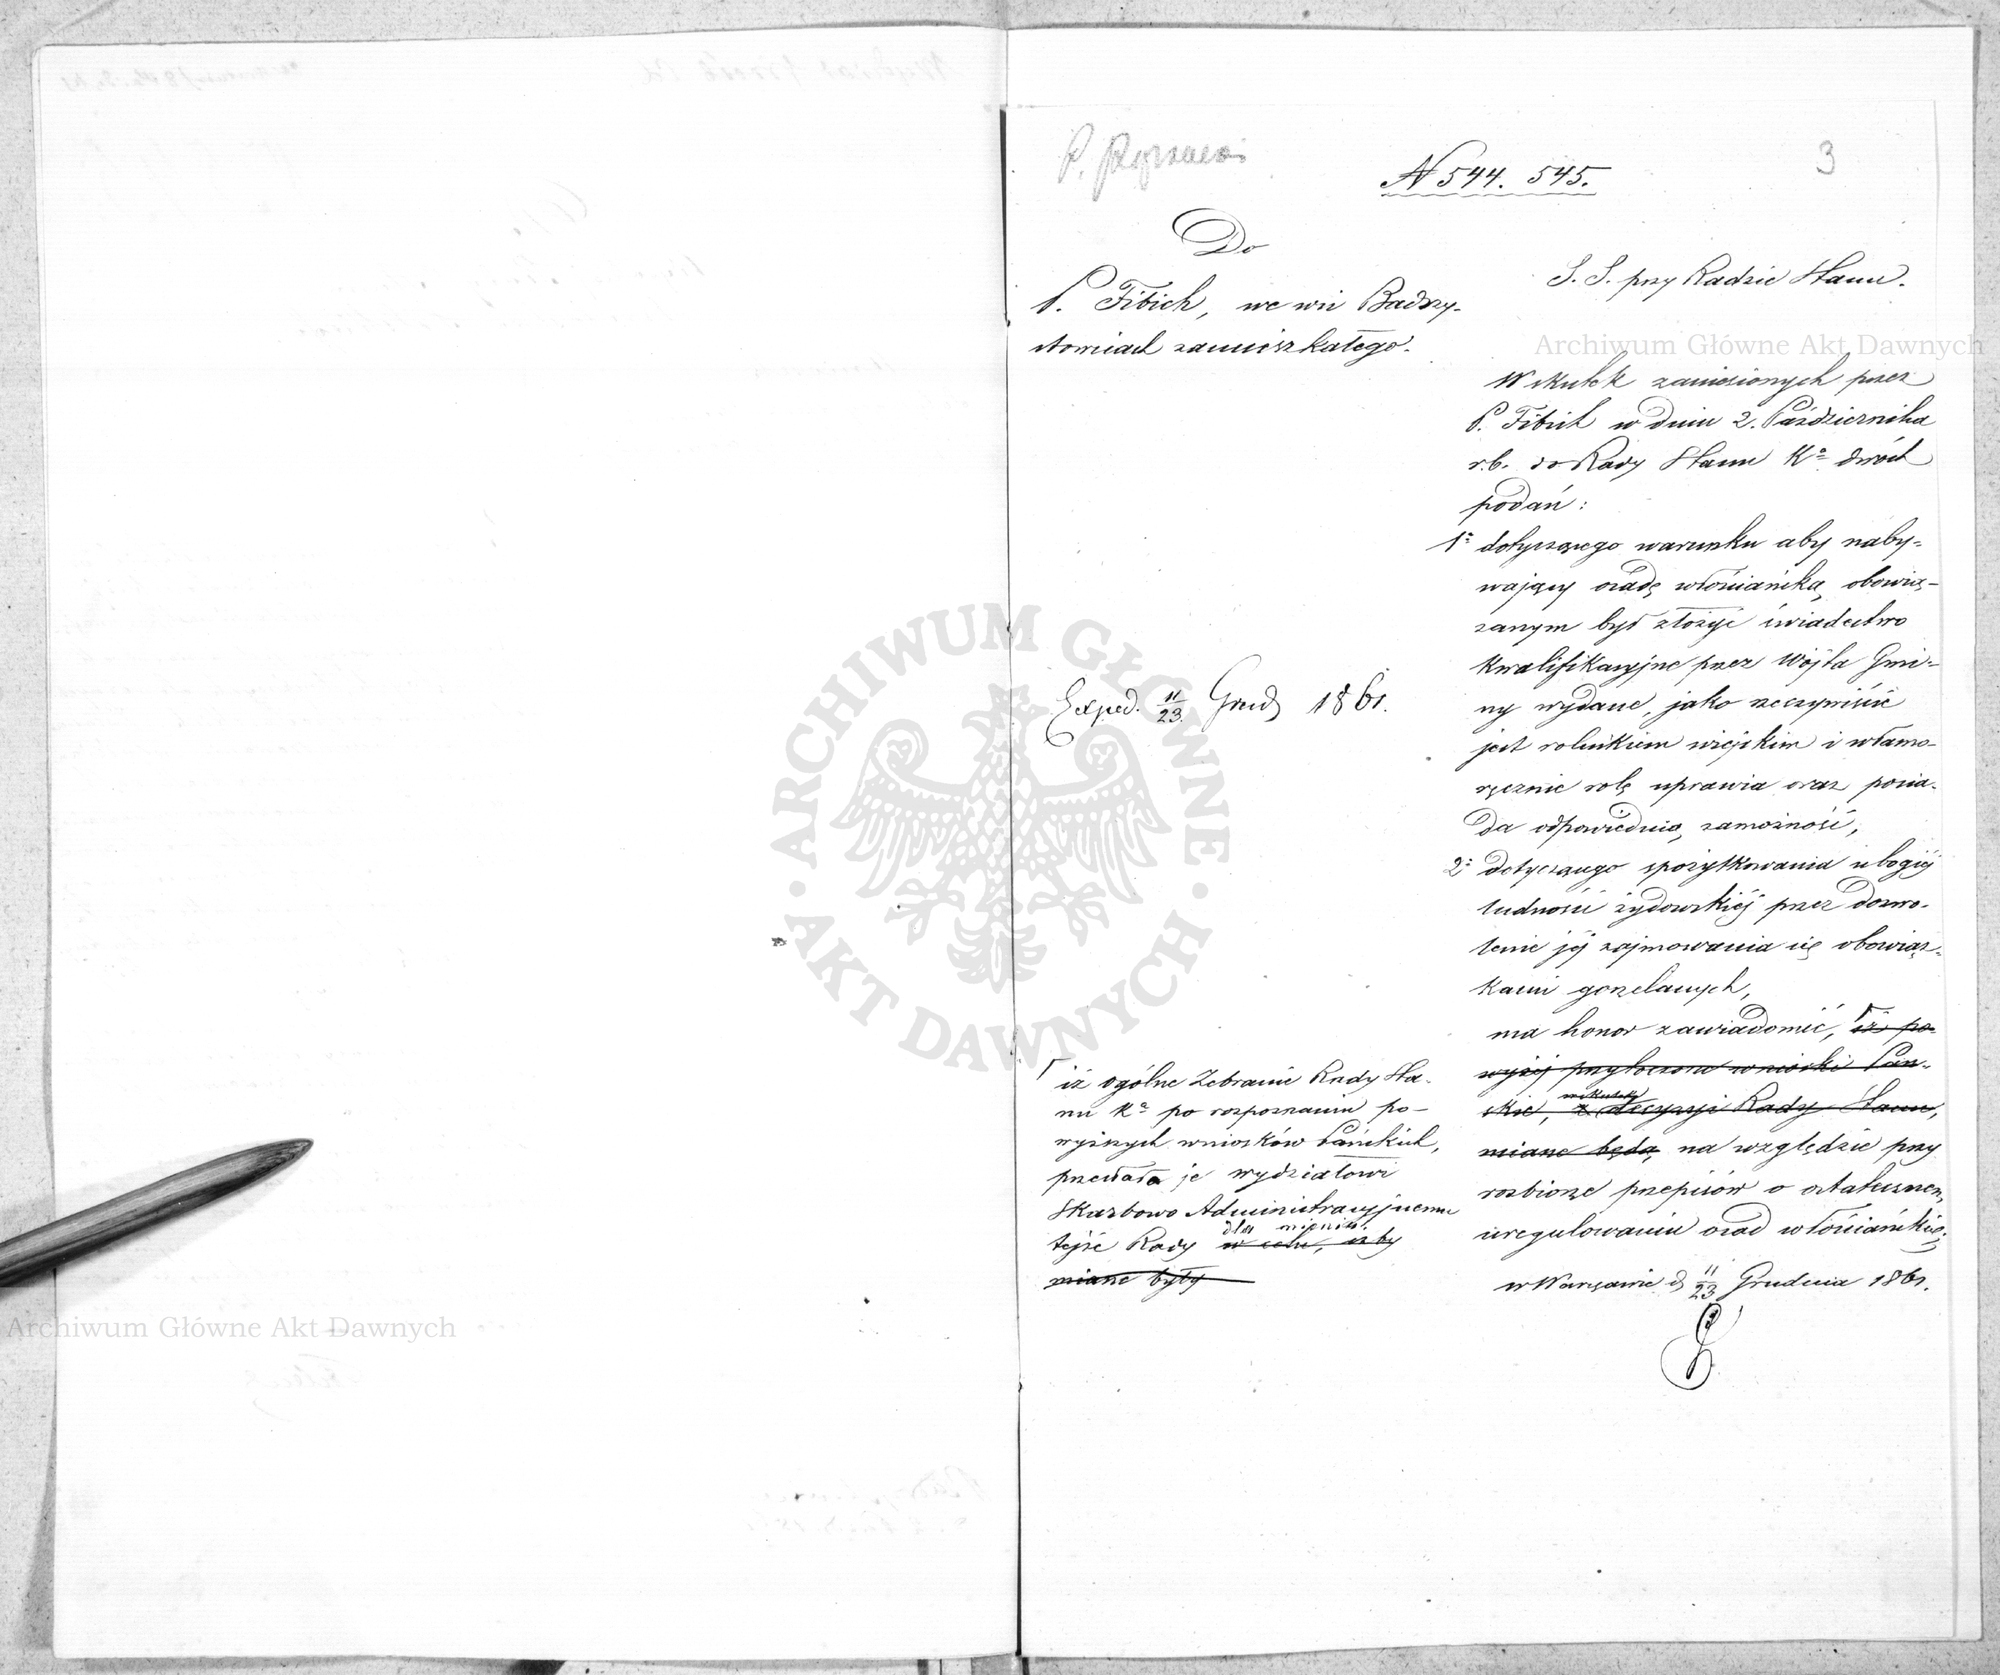 P.
N 544. 545.
3
Do
P. Fibich, we wsi Badrzy-
chowicach zamieszkałego.
S. S. przy Radzie Stanu.
W skutek zaniesionych przez
P. Fibich w dniu 2. Października
r.b. do Rady Stanu Kª dwóch
podań:
1º dotyczącego warunku aby naby-
wający osadę włościańską, obowią-
zanym był złożyć świadectwo
kwalifikacyjne przez Wójta Gmi-
ny wydane, jako rzeczywiście
jest rolnikiem wiejskim i własno-
ręcznie rolę uprawia oraz posia-
da odpowiednią zamożność,
2º dotyczącego spożytkowania ubogiéj
ludności żydowskiéj przez dozwo-
lenie jéj zajmowania się obowiąz-
kami gorzelanych,
ma honor zawiadomić, iż po-
wyżej przytoczone wnioski Pań-
skie, z decyzyi Rady Stanu,
miane będą, na względzie przy
rozbiorze przepisów o ostatecznem
uregulowaniu osad włościańskich.
w Warszawie d 11/23 Grudnia 1861.
Exped. 11/23 Grud 1861.
iż ogólne Zebranie Rady Sta-
nu Kª po rozpoznaniu po-
wyższych wniosków Pańskich,
przesłało je wydziałowi
Skarbowo Administracyjnemu
tejże Rady w celu, iżby
miane były
Archiwum Główne Akt Dawnych
Archiwum Główne Akt Dawnych
ARCHIWUM GŁÓWNE AKT DAWNYCH